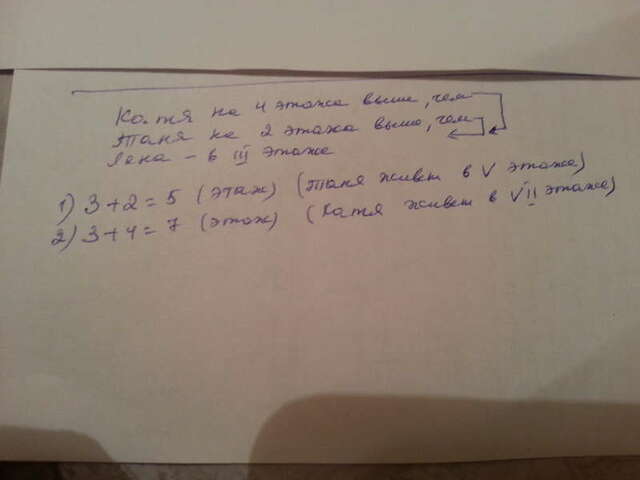 Катя на 4 этажа выше, чем
Таня на 2 этажа выше, чем
Лена - в III этаже
1) 3+2=5 (этаж) (Таня живет в V этаже)
2) 3+4=7 (этаж) (Катя живет в VII этаже)